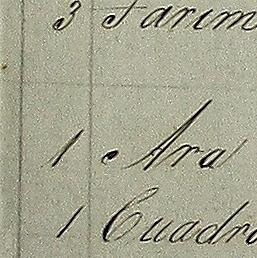 3 Tarim
1 Ara
1 Cuadro